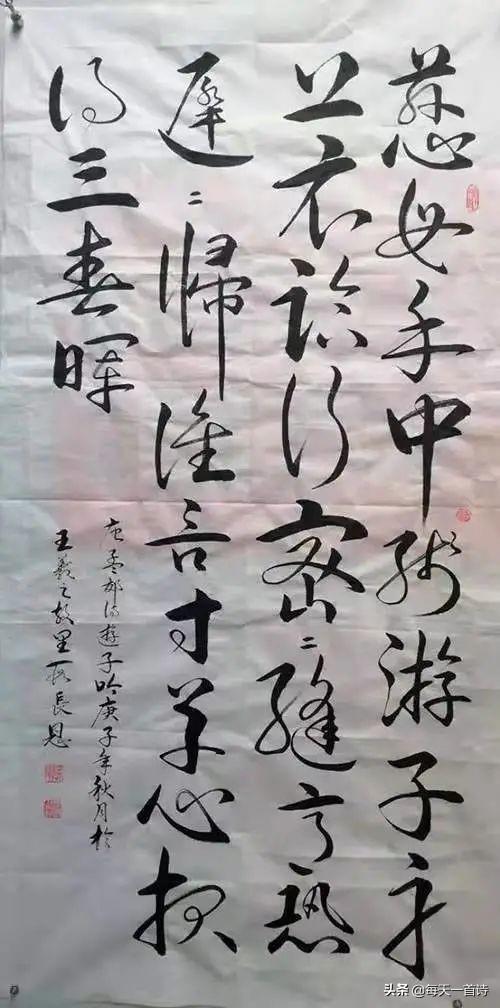 慈母手中线游子身
上衣临行密〻縫意恐
遲〻歸谁言寸草心报
得三春晖
唐孟郊诗遊子吟庚子年秋月於
王羲之故里長恩
头条 @每天一首诗